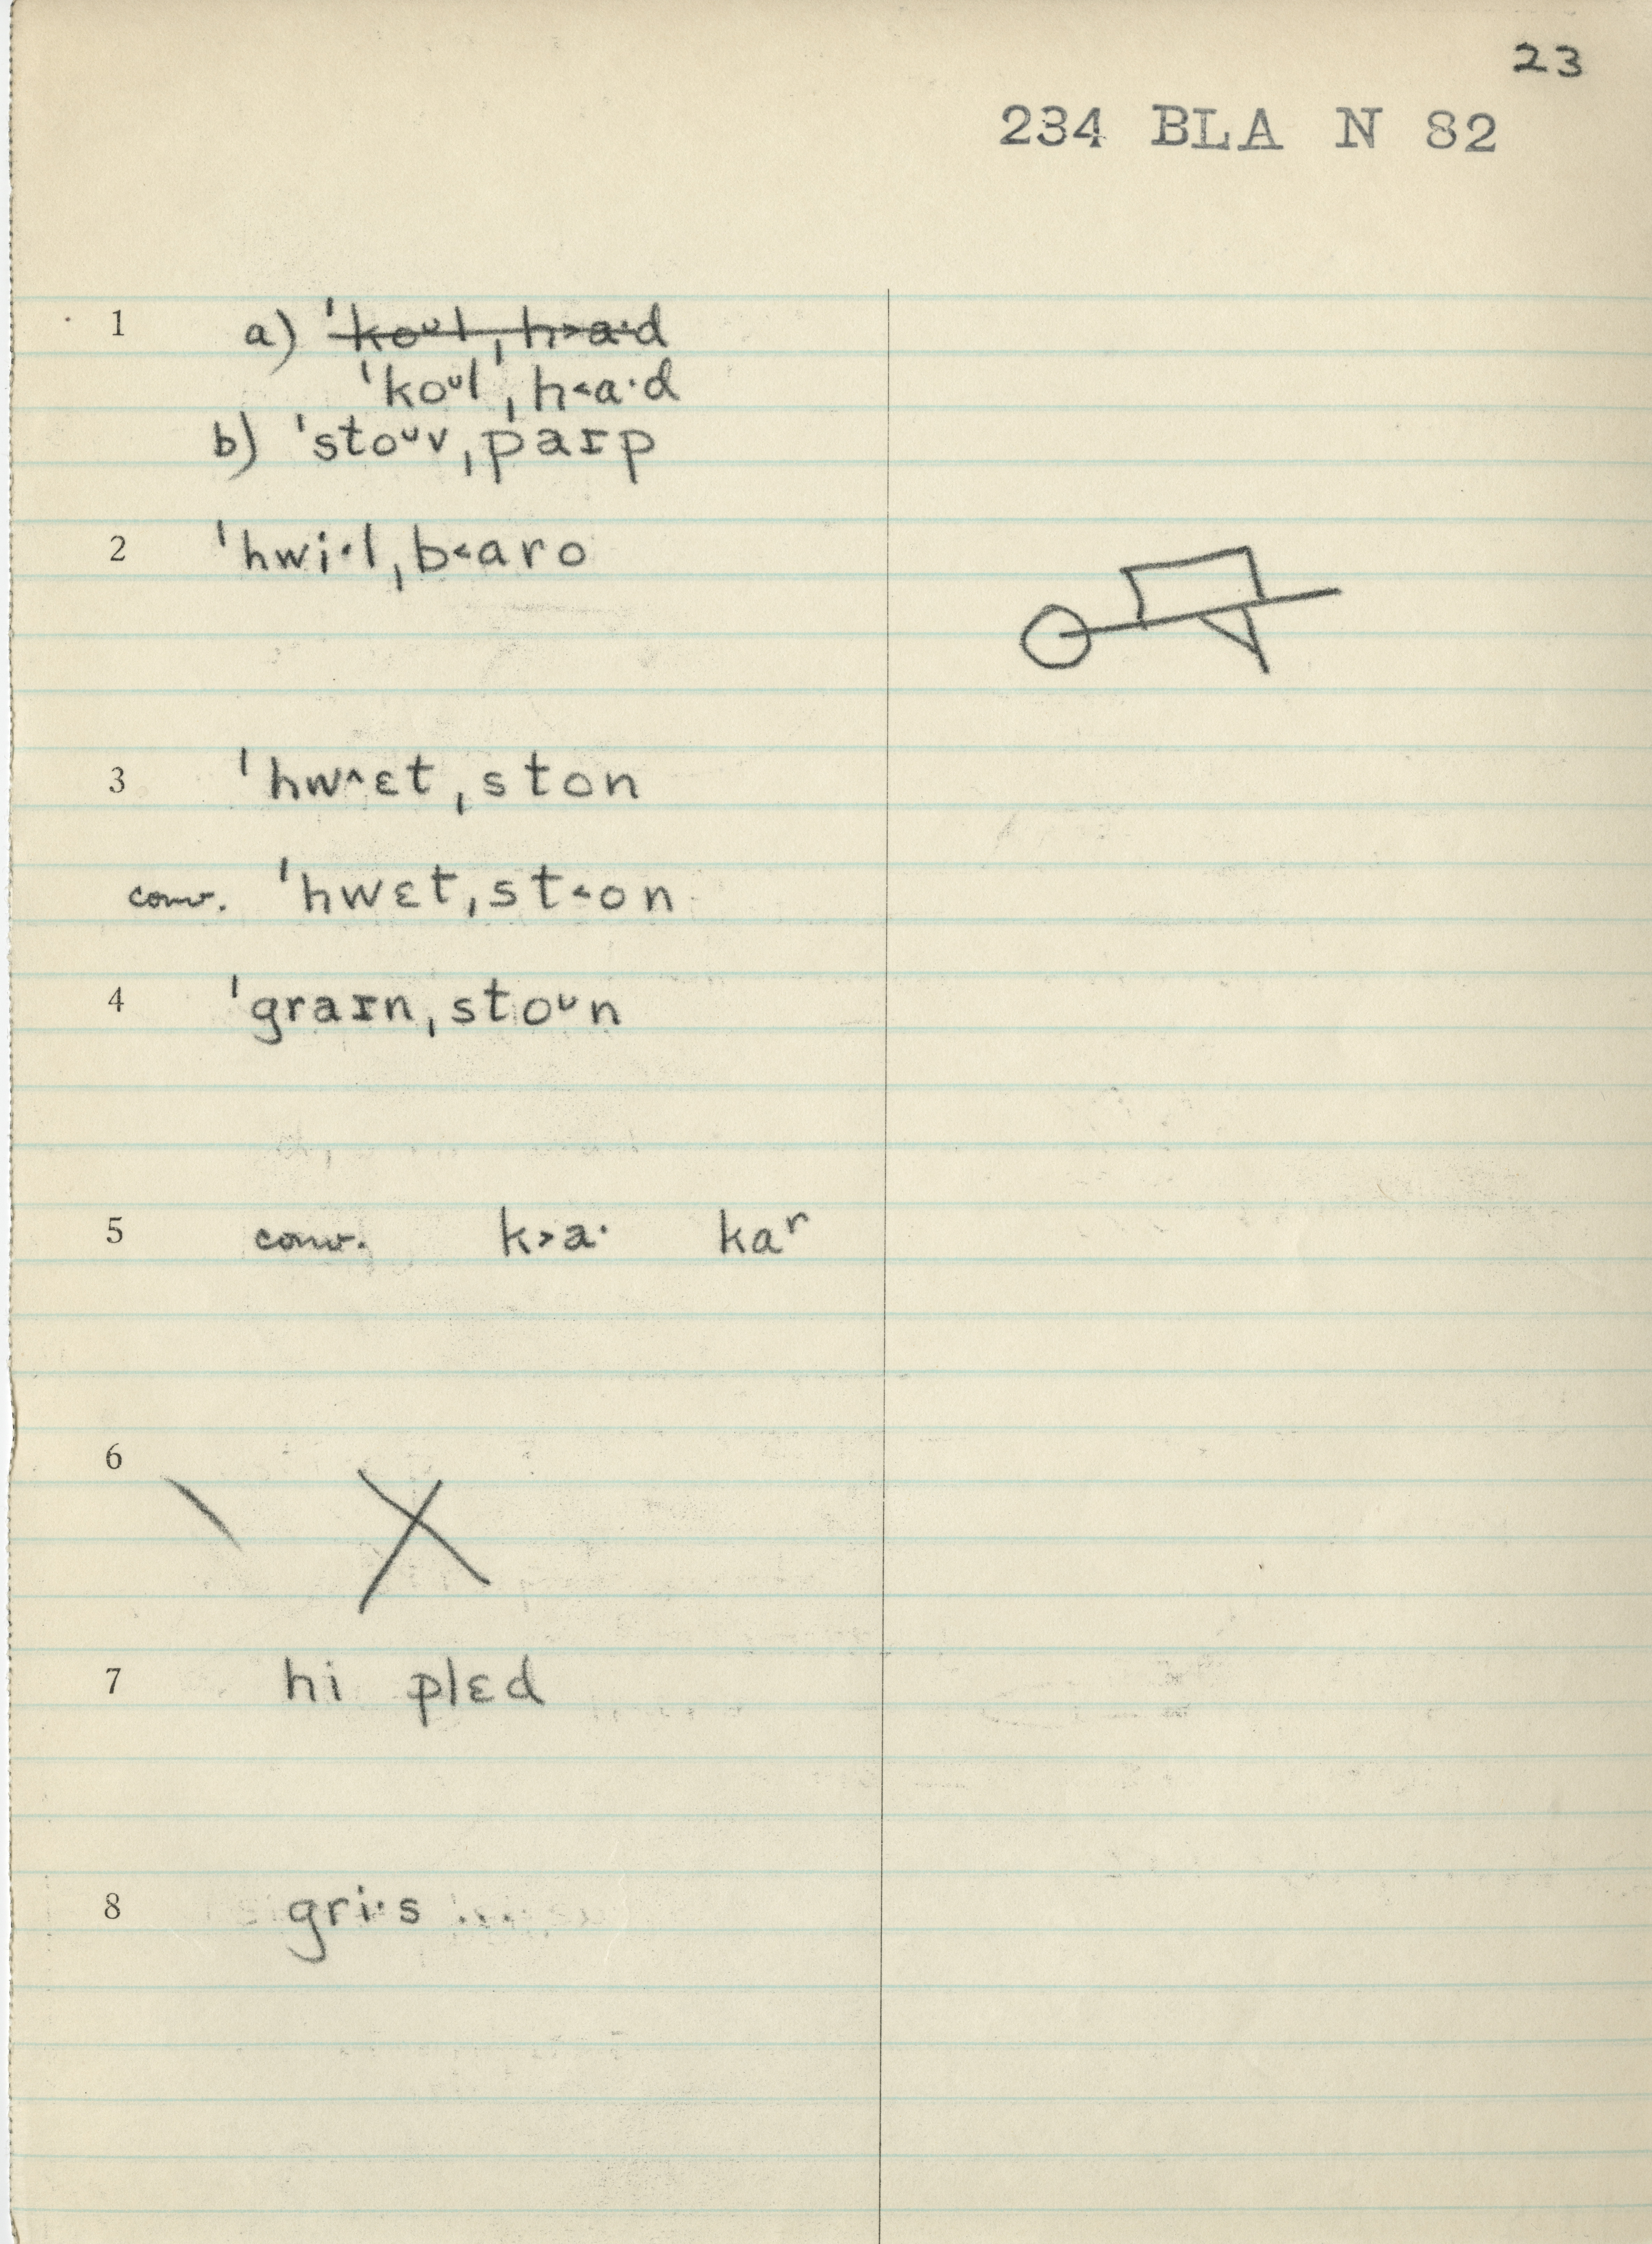 23
234 BLA N 82
1 a) ˈkoᴜl ˌh>a·d
ˈkoᴜl ˌh<a·d
b) ˈstoᴜv ˌpaɪp
2 ˈhwi·l ˌb<aro
3 ˈhw^ɛt ˌston
conv. ˈhwɛt ˌst<on
4 ˈgraɪn ˌstoᴜn
5 conv. k>a· kaʳ
6
7 hi plɛd
8 gri·s